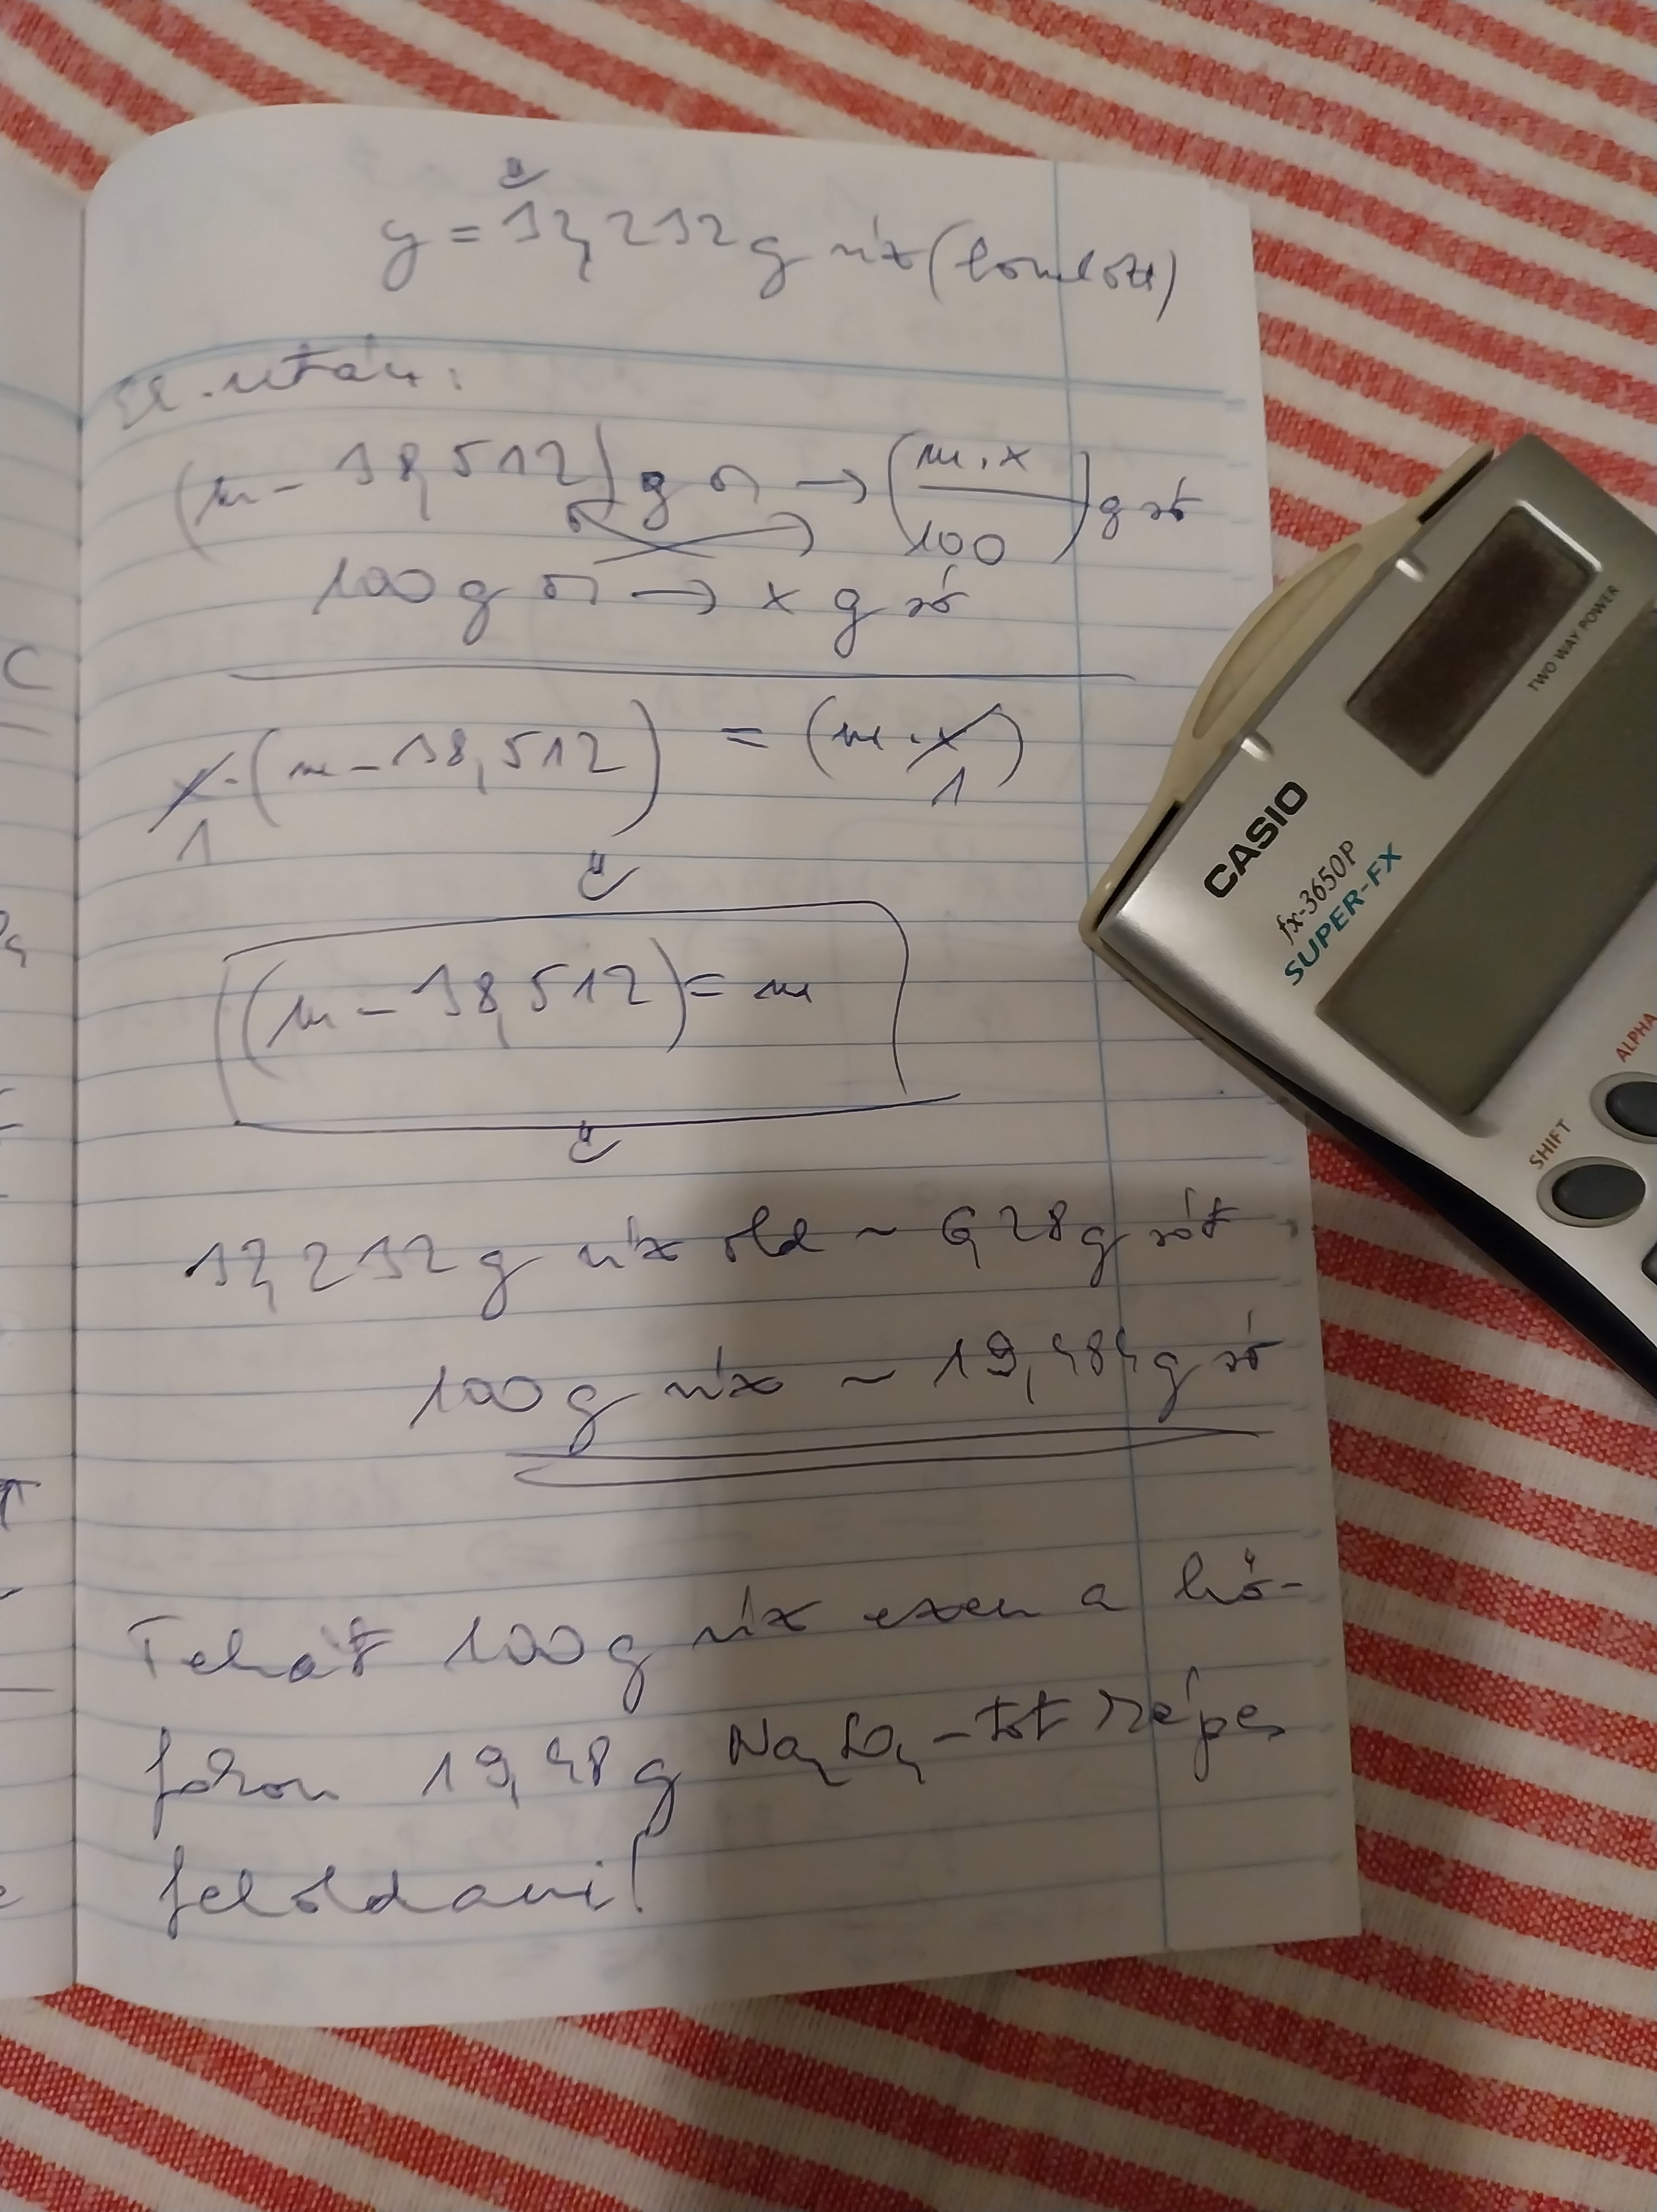 y = 32,232 g víz (bomlott)
El. után:
(m - 38,512) g o → (m·x / 100) g só
100 g o → x g só
x·(m - 38,512) = (m·x)
1 1
(m - 38,512) = m
32,232 g víz old ~ 6,28 g sót
100 g víz ~ 19,484 g só
Tehát 100 g víz ezen a hő-
fokon 19,48 g Na2SO4-tot képes
feloldani!
CASIO
fx-3650P
SUPER-FX
TWO WAY POWER
ALPHA
SHIFT
C